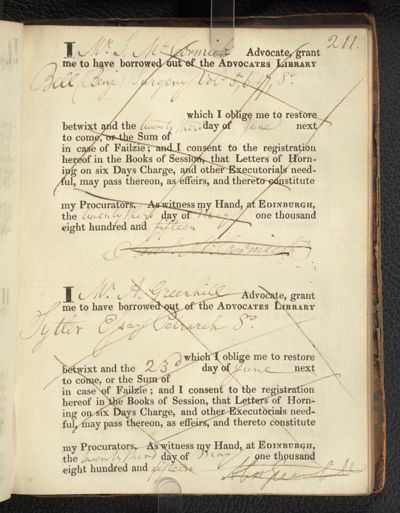 211.
I Mr. S. McCormick Advocate, grant
me to have borrowed out of the ADVOCATES LIBRARY
Bell (Benj) Surgery Vol. 5, 6, 7, 8o.
which I oblige me to restore
betwixt and the twenty third day of June next
to come, or the Sum of
in case of Failzie; and I consent to the registration
hereof in the Books of Session, that Letters of Horn-
ing on six Days Charge, and other Executorials need-
ful, may pass thereon, as effeirs, and thereto constitute
my Procurators. As witness my Hand, at EDINBURGH,
the twenty third day of May one thousand
eight hundred and fifteen
McCormick
I Mr. A. Greenhill Advocate, grant
me to have borrowed out of the ADVOCATES LIBRARY
Tytler Essay Petrarch 8o
which I oblige me to restore
betwixt and the 23d day of June next
to come, or the Sum of
in case of Failzie; and I consent to the registration
hereof in the Books of Session, that Letters of Horn-
ing on six Days Charge, and other Executorials need-
ful, may pass thereon, as effeirs, and thereto constitute
my Procurators. As witness my Hand, at EDINBURGH,
the twenty third day of May one thousand
eight hundred and fifteen